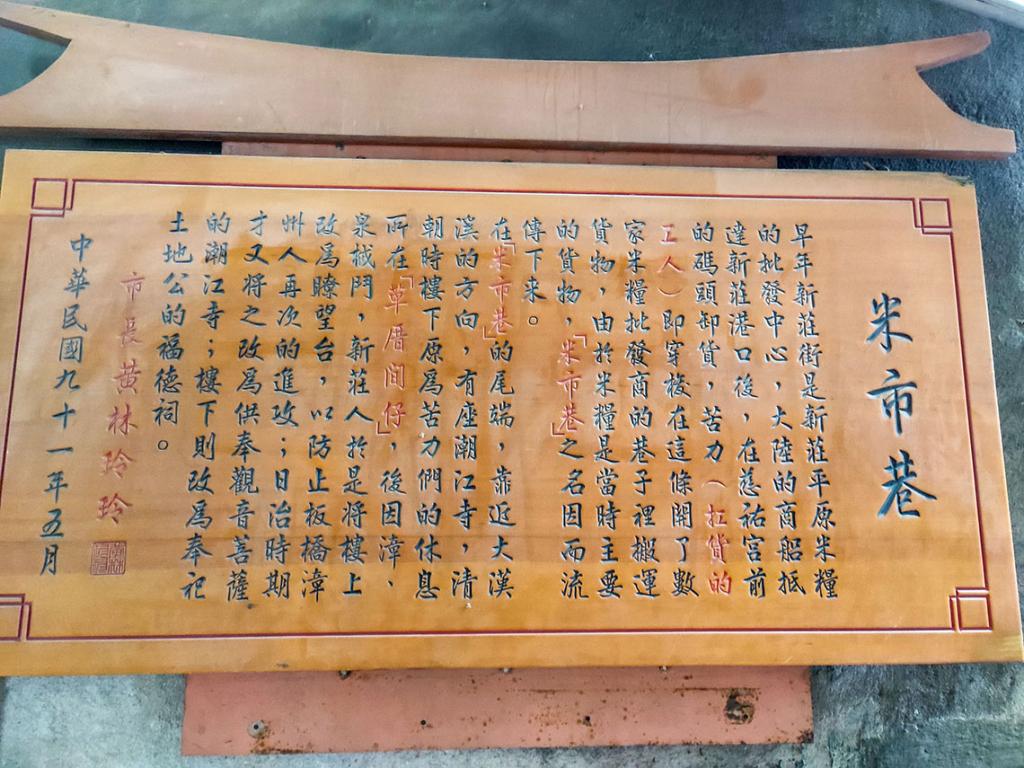 米市巷
早年新莊街是新莊平原米糧
的批發中心，大陸的商船抵
達新莊港口後，在慈祐宮前
的碼頭卸貨，苦力（扛貨的
工人）即穿梭在這條開了數
家米糧批發商的巷子裡搬運
貨物，由於米糧是當時主要
的貨物，「米市巷」之名因而流
傳下來。
在「米市巷」的尾端，靠近大漢
溪的方向，有座潮江寺，清
朝時樓下原為苦力們的休息
所在「草厝間仔」，後因漳、
泉械鬥，新莊人於是將樓上
改為瞭望台，以防止板橋漳
州人再次的進攻；日治時期
才又將之改為供奉觀音菩薩
的潮江寺；樓下則改為奉祀
土地公的福德祠。
市長黃林玲玲
中華民國九十一年五月